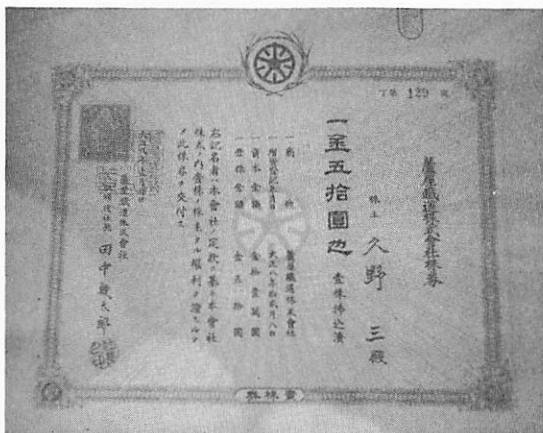 丁第 129 號
蘆屋鐵道株式會社株券
株主 久野 三殿
一金五拾圓也 壹株拂込濟
一商 號 蘆屋鐵道株式會社
一增資登記年月日 大正八年拾貳月八日
一資本金額 金拾壹萬圓
一壹株金額 金五拾圓
右記名者ハ本會社ノ定款ニ基キ本會社
株式ノ內壹株ノ株主タル權利ヲ證スル爲
メ此株券ヲ交付ス
蘆屋鐵道株式會社
取締役社長 田中
壹株券